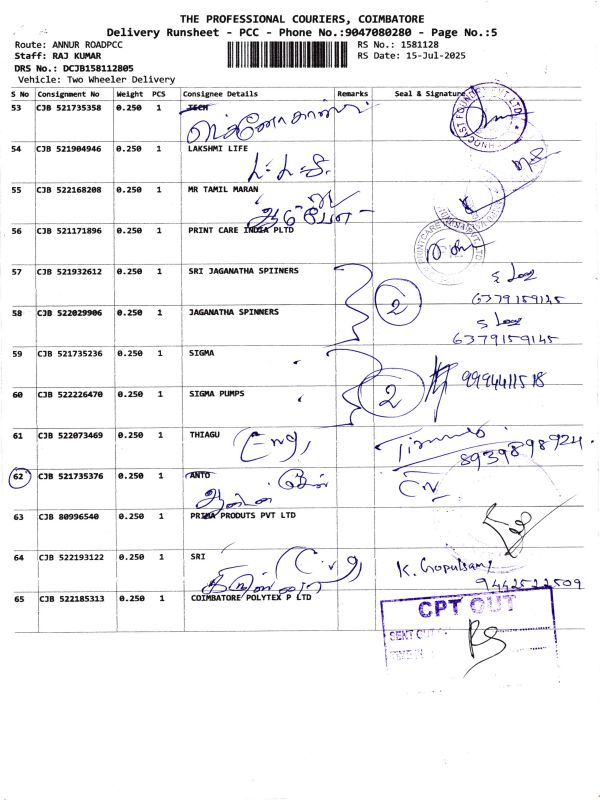 THE PROFESSIONAL COURIERS, COIMBATORE
Delivery Runsheet - PCC - Phone No.:9047080280 - Page No.:5
Route: ANNUR ROADPCC RS No.: 1581128
Staff: RAJ KUMAR RS Date: 15-Jul-2025
DRS No.: DCJB158112805
Vehicle: Two Wheeler Delivery
S No Consignment No Weight PCS Consignee Details Remarks Seal & Signature
53 CJB 521735358 0.250 1 TECH
54 CJB 521904946 0.250 1 LAKSHMI LIFE
55 CJB 522168208 0.250 1 MR TAMIL MARAN
56 CJB 521171896 0.250 1 PRINT CARE INDIA PLTD
57 CJB 521932612 0.250 1 SRI JAGANATHA SPIINERS
2
6379159145
58 CJB 522029906 0.250 1 JAGANATHA SPINNERS
6379159145
59 CJB 521735236 0.250 1 SIGMA
9994411518
60 CJB 522226470 0.250 1 SIGMA PUMPS
2
61 CJB 522073469 0.250 1 THIAGU
8939898924
62 CJB 521735376 0.250 1 ANTO
63 CJB 80996540 0.250 1 PRIMA PRODUTS PVT LTD
64 CJB 522193122 0.250 1 SRI
K. Gopalsamy
9442522509
65 CJB 522185313 0.250 1 COIMBATORE POLYTEX P LTD
CPT OUT
SENT OUT
TIME IN